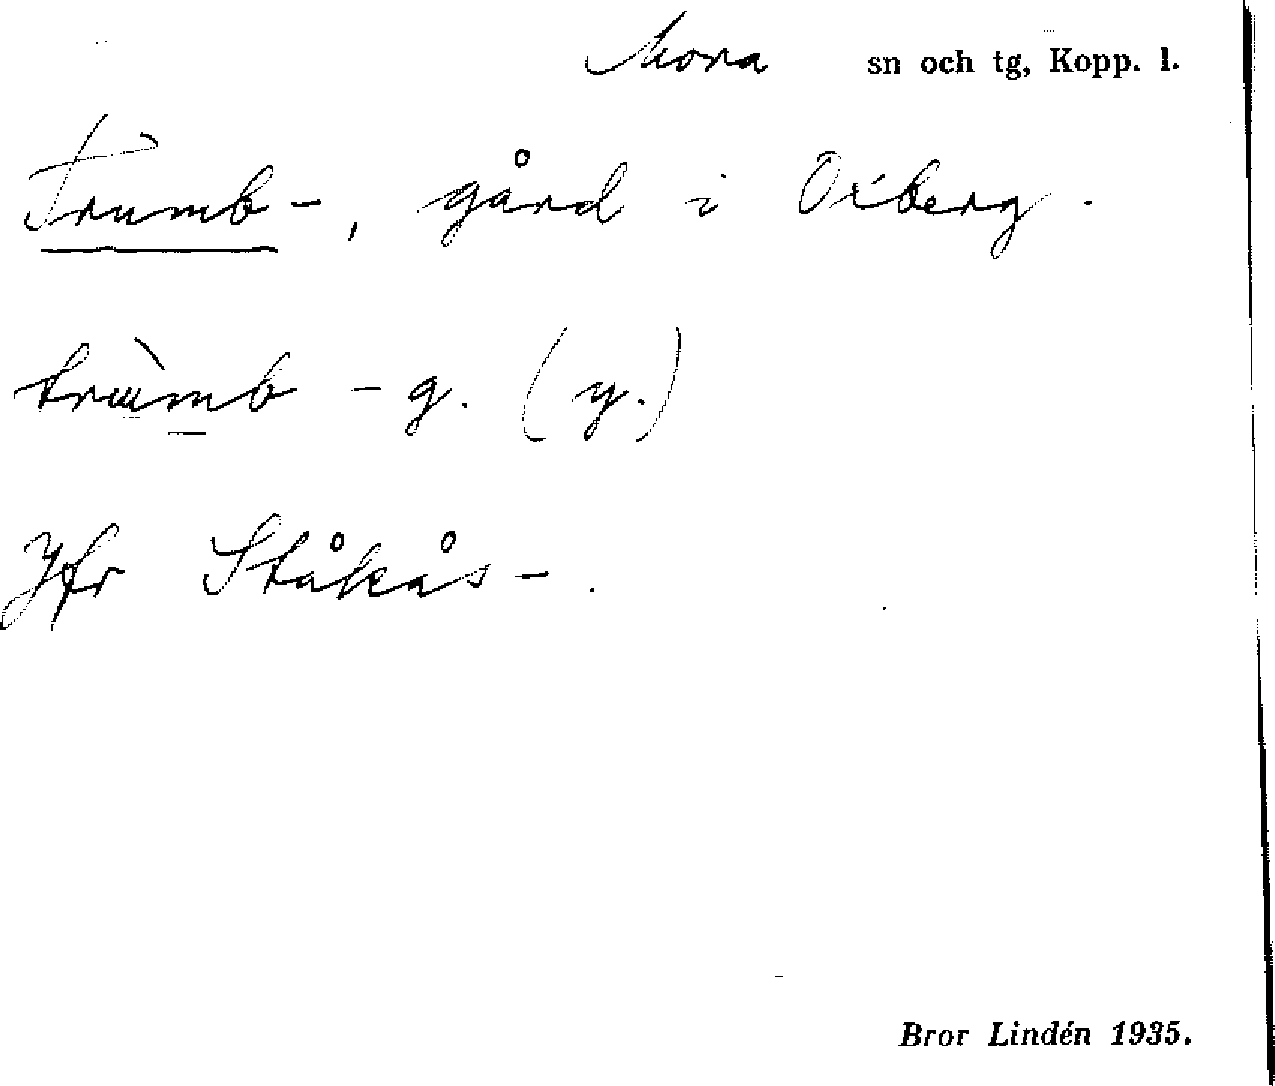 Mora sn och tg, Kopp. l.
Trumb-, gård i Oxberg.
trùmb -g. (y.)
Jfr Ståkås-.
Bror Lindén 1935.